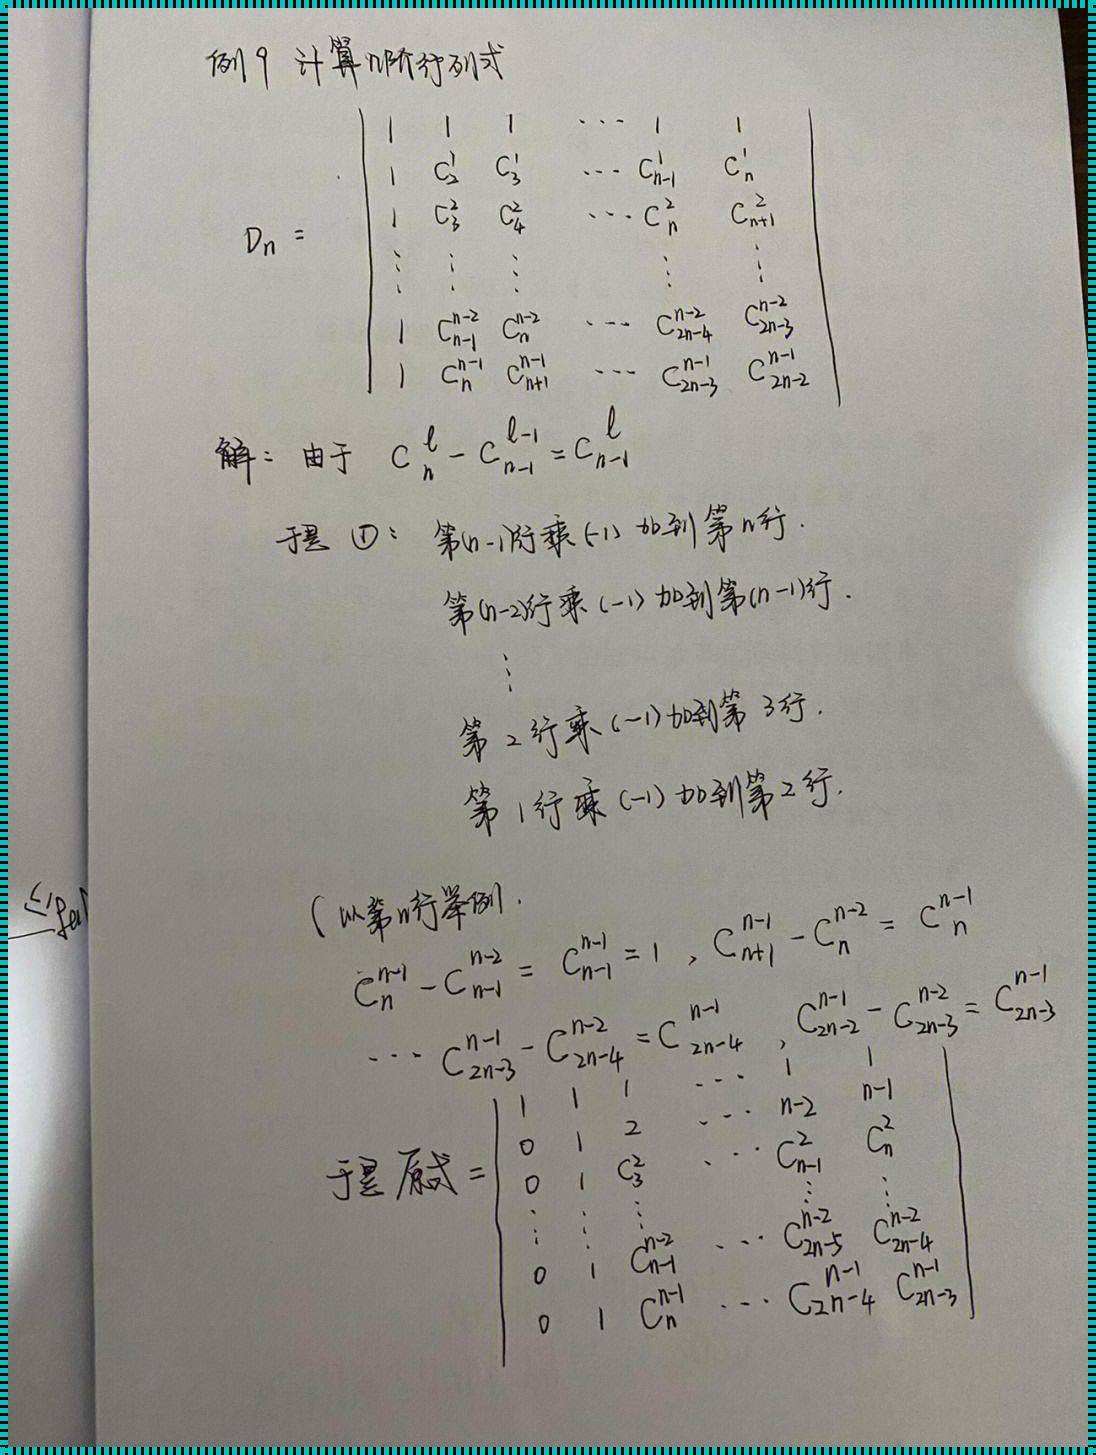 例9 计算n阶行列式
1 1 1 ··· 1 1
1 C₂¹ C₃¹ ··· Cₙ₋₁¹ Cₙ¹
1 C₃² C₄² ··· Cₙ² Cₙ₊₁²
Dₙ =
⋮ ⋮ ⋮ ⋮ ⋮
1 Cₙ₋₁ⁿ⁻² Cₙⁿ⁻² ··· C₂ₙ₋₄ⁿ⁻² C₂ₙ₋₃ⁿ⁻²
1 Cₙⁿ⁻¹ Cₙ₊₁ⁿ⁻¹ ··· C₂ₙ₋₃ⁿ⁻¹ C₂ₙ₋₂ⁿ⁻¹
解: 由于 Cₙˡ - Cₙ₋₁ˡ⁻¹ = Cₙ₋₁ˡ
于是 ①: 第(n-1)行乘(-1)加到第n行.
第(n-2)行乘(-1)加到第(n-1)行.
⋮
第2行乘(-1)加到第3行.
第1行乘(-1)加到第2行.
(以第n行举例.
Cₙⁿ⁻¹ - Cₙ₋₁ⁿ⁻² = Cₙ₋₁ⁿ⁻¹ = 1 , Cₙ₊₁ⁿ⁻¹ - Cₙⁿ⁻² = Cₙⁿ⁻¹
··· C₂ₙ₋₃ⁿ⁻¹ - C₂ₙ₋₄ⁿ⁻² = C₂ₙ₋₄ⁿ⁻¹ , C₂ₙ₋₂ⁿ⁻¹ - C₂ₙ₋₃ⁿ⁻² = C₂ₙ₋₃ⁿ⁻¹
1 1 1 ··· 1 1
0 1 2 ··· n-2 n-1
于是 原式 =
0 1 C₃² ··· Cₙ₋₁² Cₙ²
⋮ ⋮ ⋮ ⋮ ⋮
0 1 Cₙ₋₁ⁿ⁻² ··· C₂ₙ₋₅ⁿ⁻² C₂ₙ₋₄ⁿ⁻²
0 1 Cₙⁿ⁻¹ ··· C₂ₙ₋₄ⁿ⁻¹ C₂ₙ₋₃ⁿ⁻¹